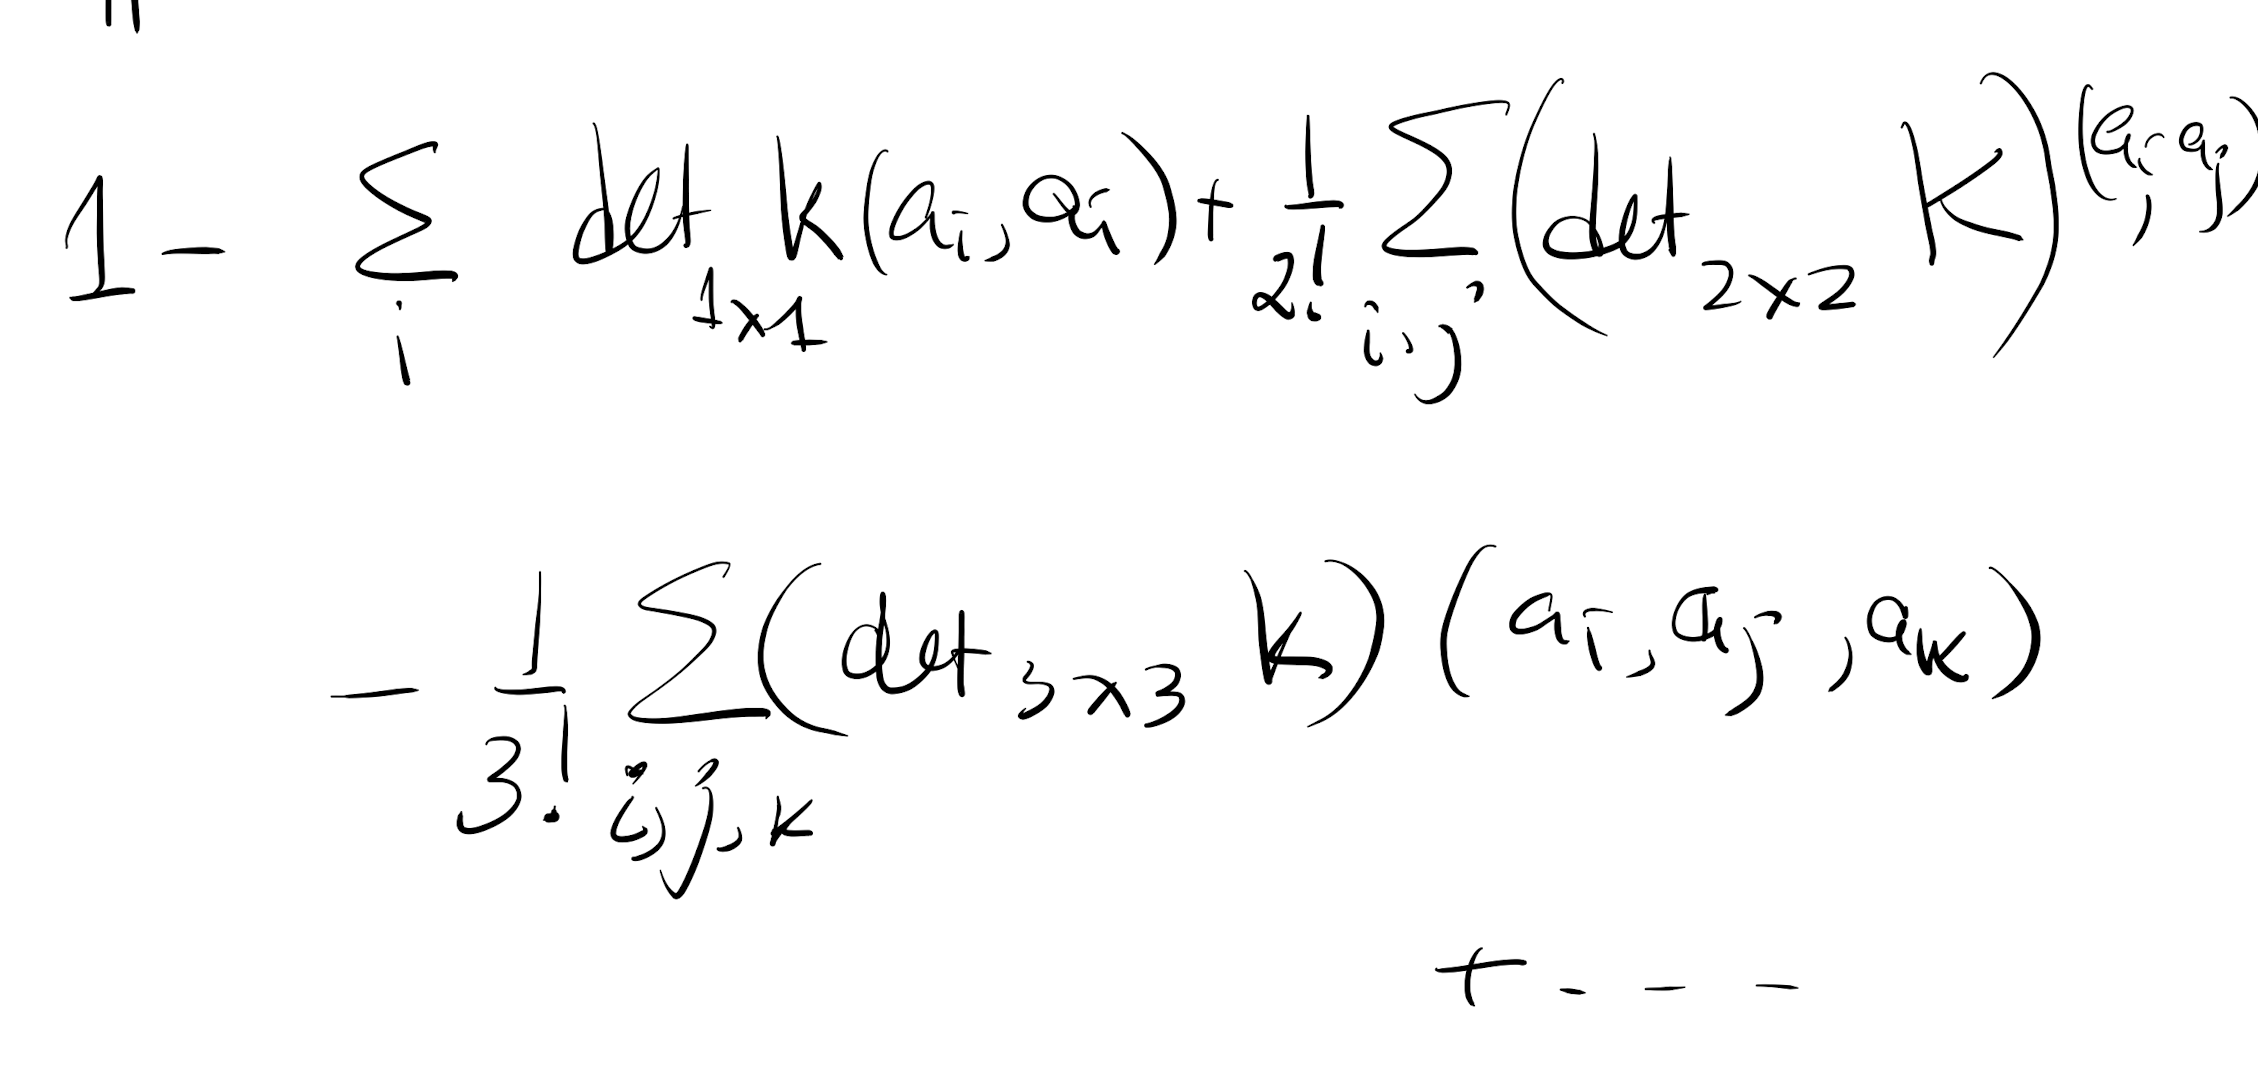 1 - Σ_i det_{1×1} k(a_i, a_i) + 1/2! Σ_{i,j} (det_{2×2} K)(a_i, a_j)
- 1/3! Σ_{i,j,k} (det_{3×3} K)(a_i, a_j, a_k)
+ - - -